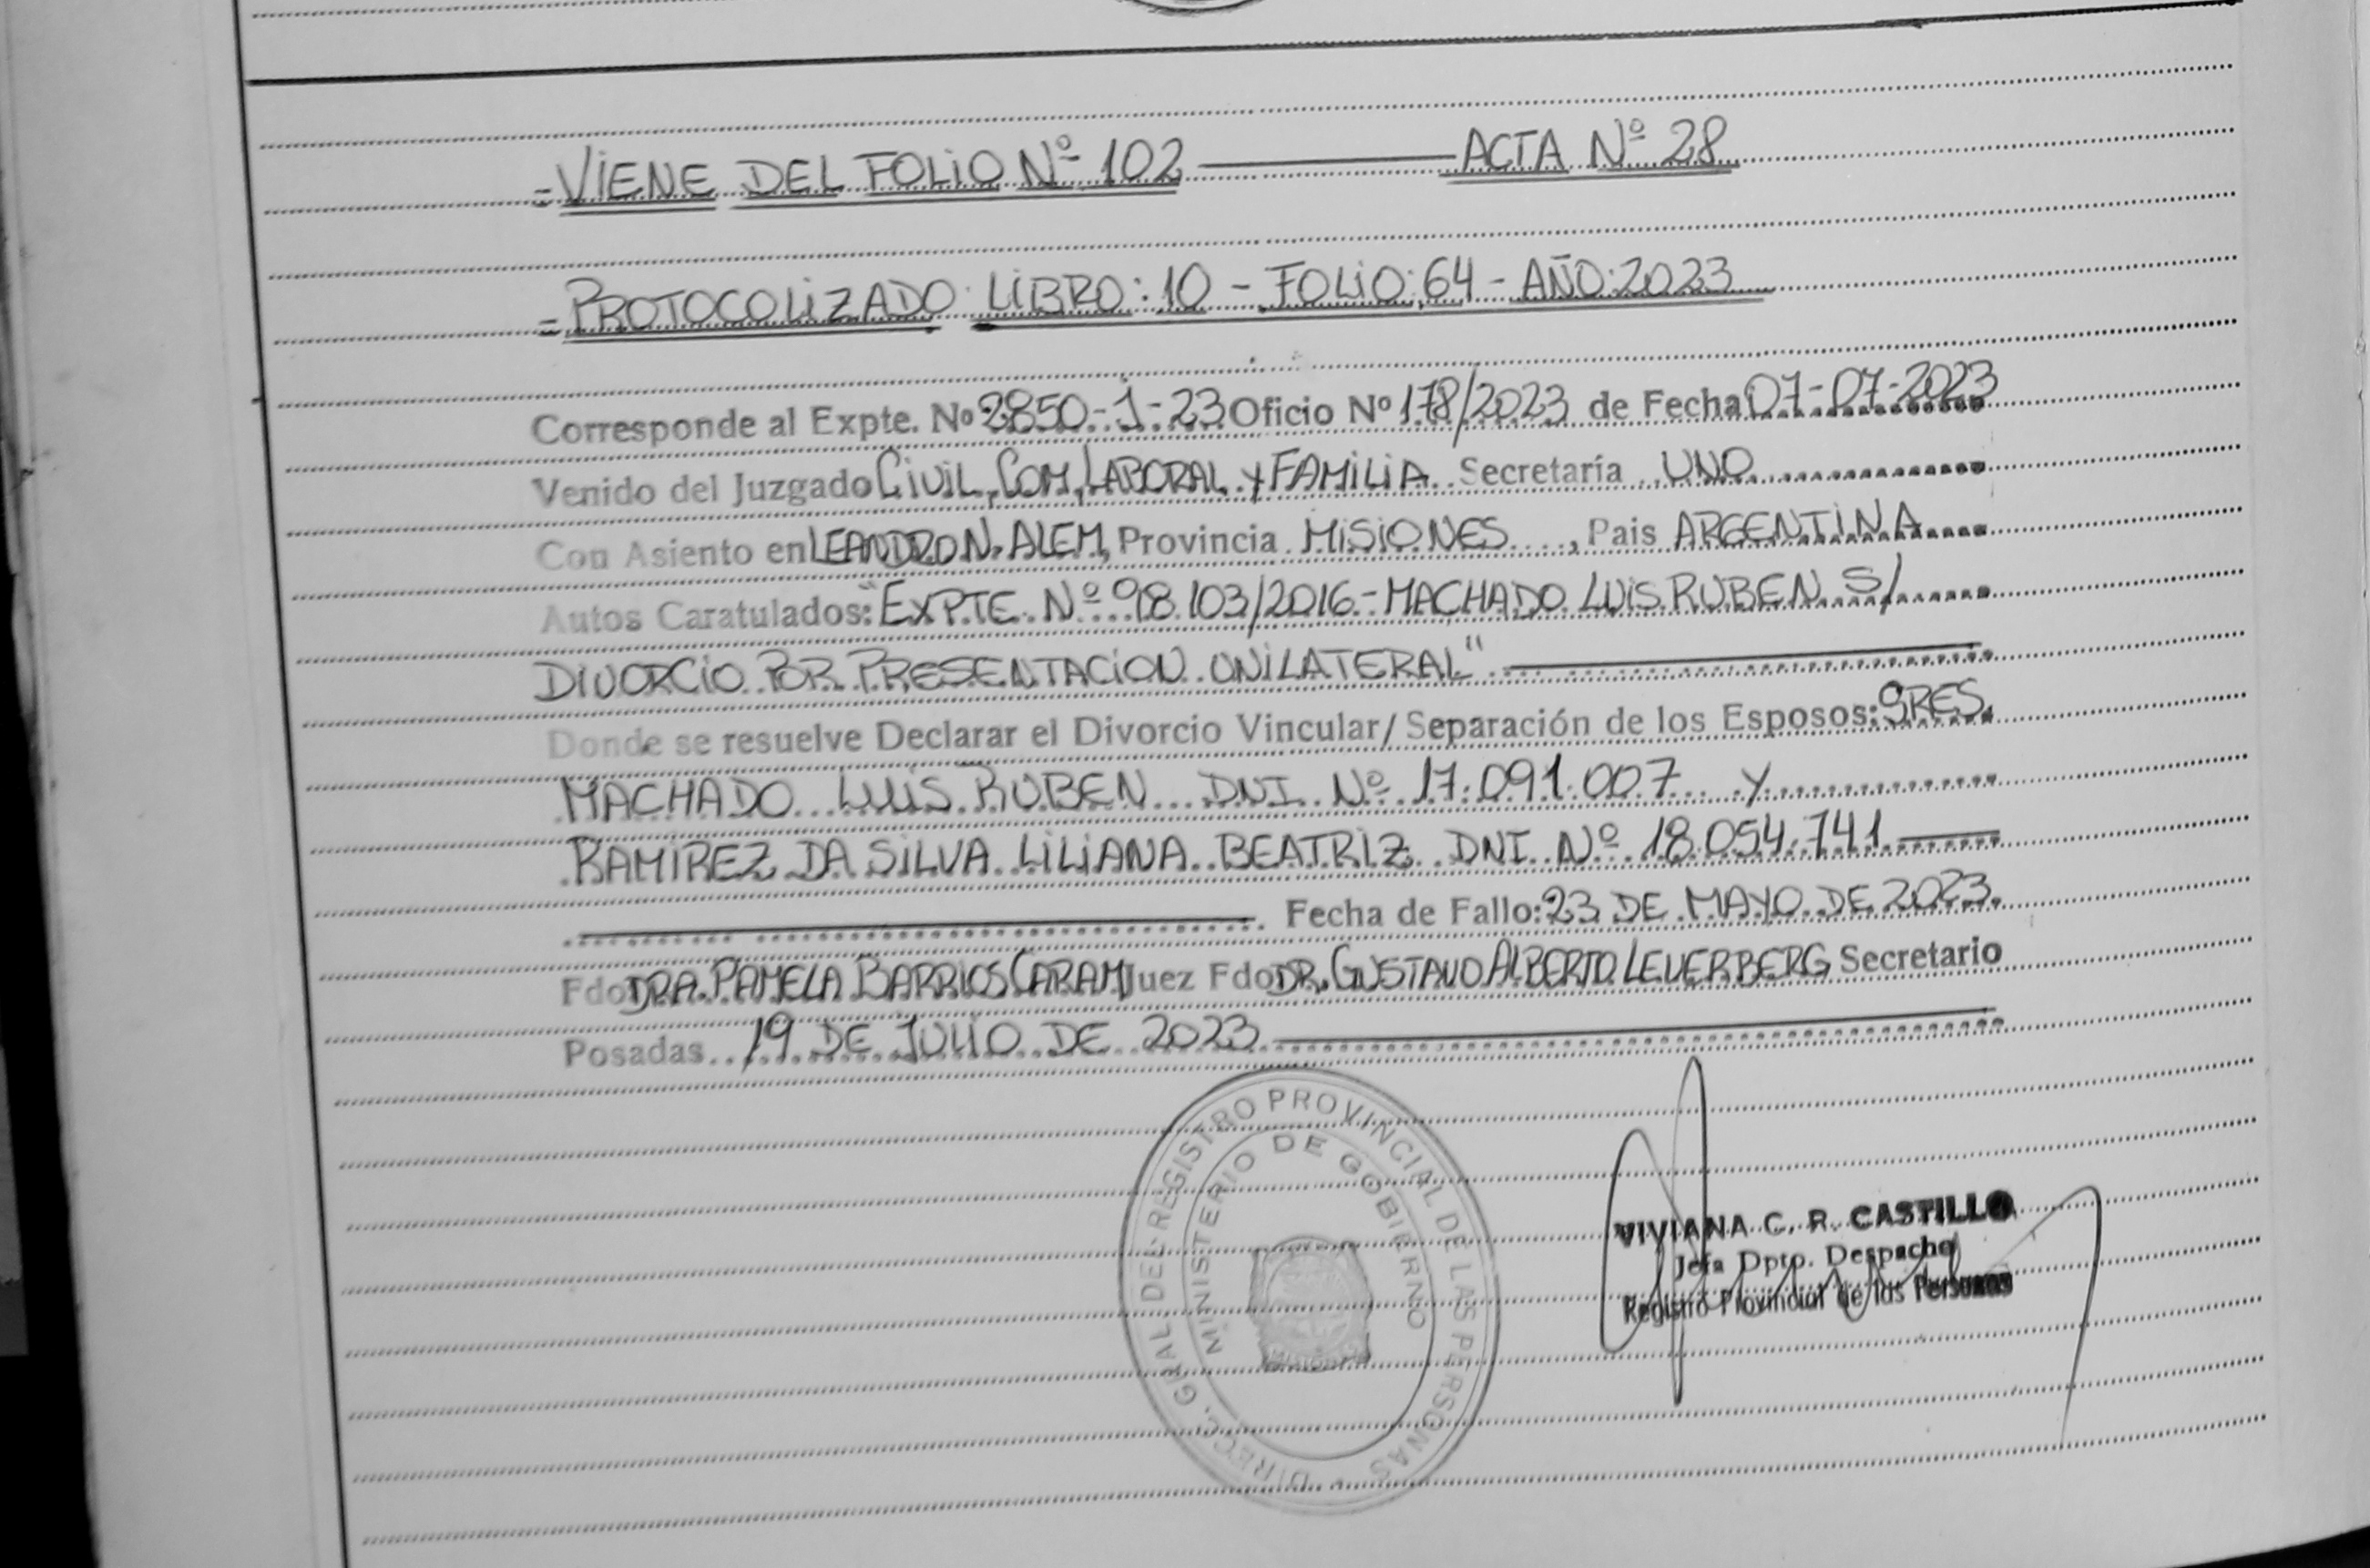 =VIENE DEL FOLIO Nº 102 ACTA Nº 28
=PROTOCOLIZADO: LIBRO: 10 - FOLIO: 64 - AÑO: 2023
Corresponde al Expte. Nº 2850-J-23 Oficio Nº 178/2023 de Fecha 07-07-2023
Venido del Juzgado CIVIL, COM, LABORAL Y FAMILIA Secretaría UNO
Con Asiento en LEANDRO N. ALEM, Provincia MISIONES, Pais ARGENTINA
Autos Caratulados: "EXPTE. Nº 98.103/2016 - MACHADO LUIS RUBEN S/
DIVORCIO POR PRESENTACION UNILATERAL"
Donde se resuelve Declarar el Divorcio Vincular/ Separación de los Esposos: SRES.
MACHADO LUIS RUBEN DNI. Nº 17.091.007 Y
RAMIREZ DA SILVA LILIANA BEATRIZ DNI. Nº 18.054.741
Fecha de Fallo: 23 DE MAYO DE 2023.
Fdo DRA. PAMELA BARRIOS CARAM Juez Fdo DR. GUSTAVO ALBERTO LEVERBERG Secretario
Posadas 19 DE JULIO DE 2023
DIRECC. GRAL DEL REGISTRO PROVINCIAL DE LAS PERSONAS
MINISTERIO DE GOBIERNO
VIVIANA C. R. CASTILLO
Jefa Dpto. Despacho
Registro Provincial de las Personas